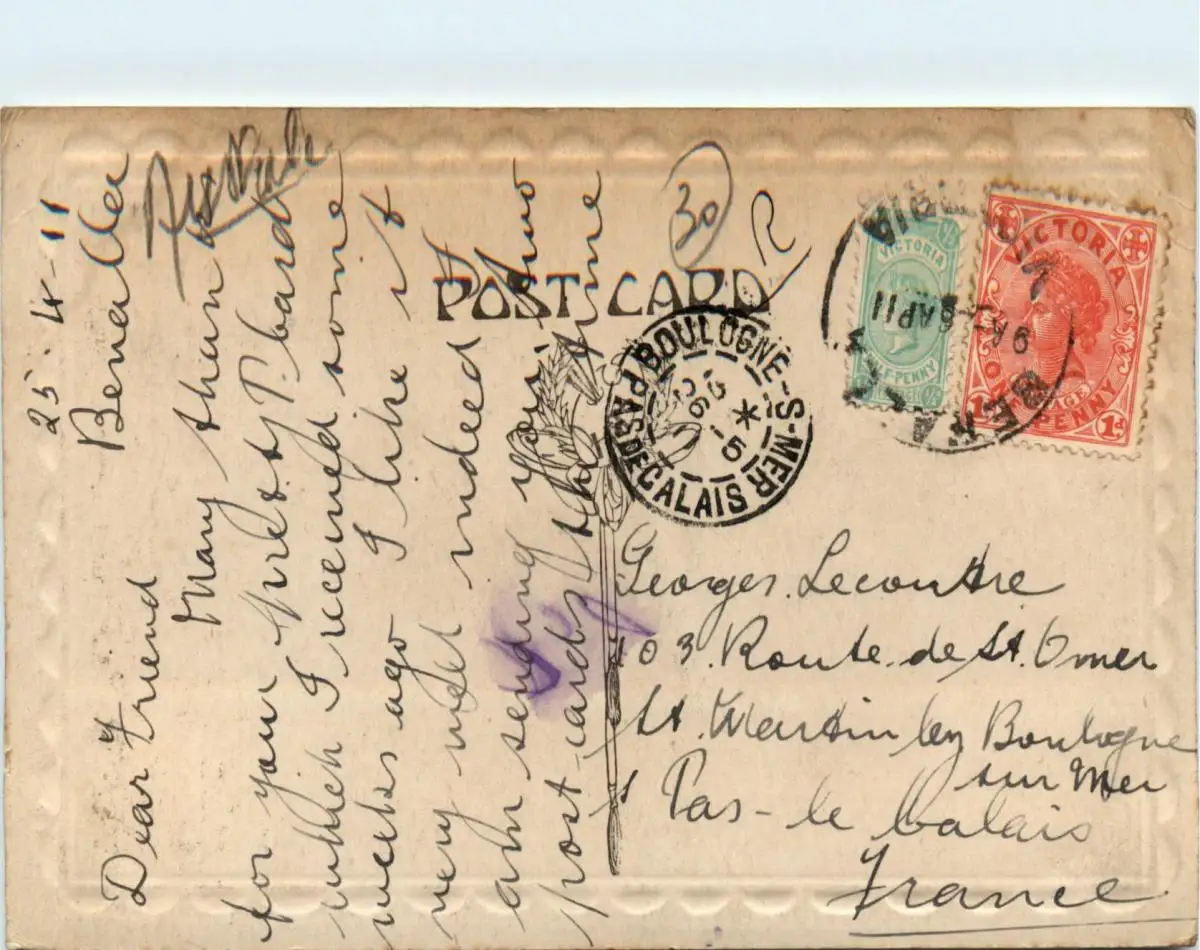 25-4-11
Benalla
Dear Friend
Many thanks
for your pretty P. card
which I received some
weeks ago I like it
very much indeed I
am sending you two
post cards this time
POST CARD
30
R
VICTORIA
HALF PENNY
VICTORIA
ONE PENNY
1d 1d
BENALLA
VICTORIA
AP 11
BOULOGNE-S-MER
PAS DE CALAIS
Georges Lecoutre
103. Route de St. Omer
St. Martin ley Boulogne
sur Mer
Pas-le Calais
France